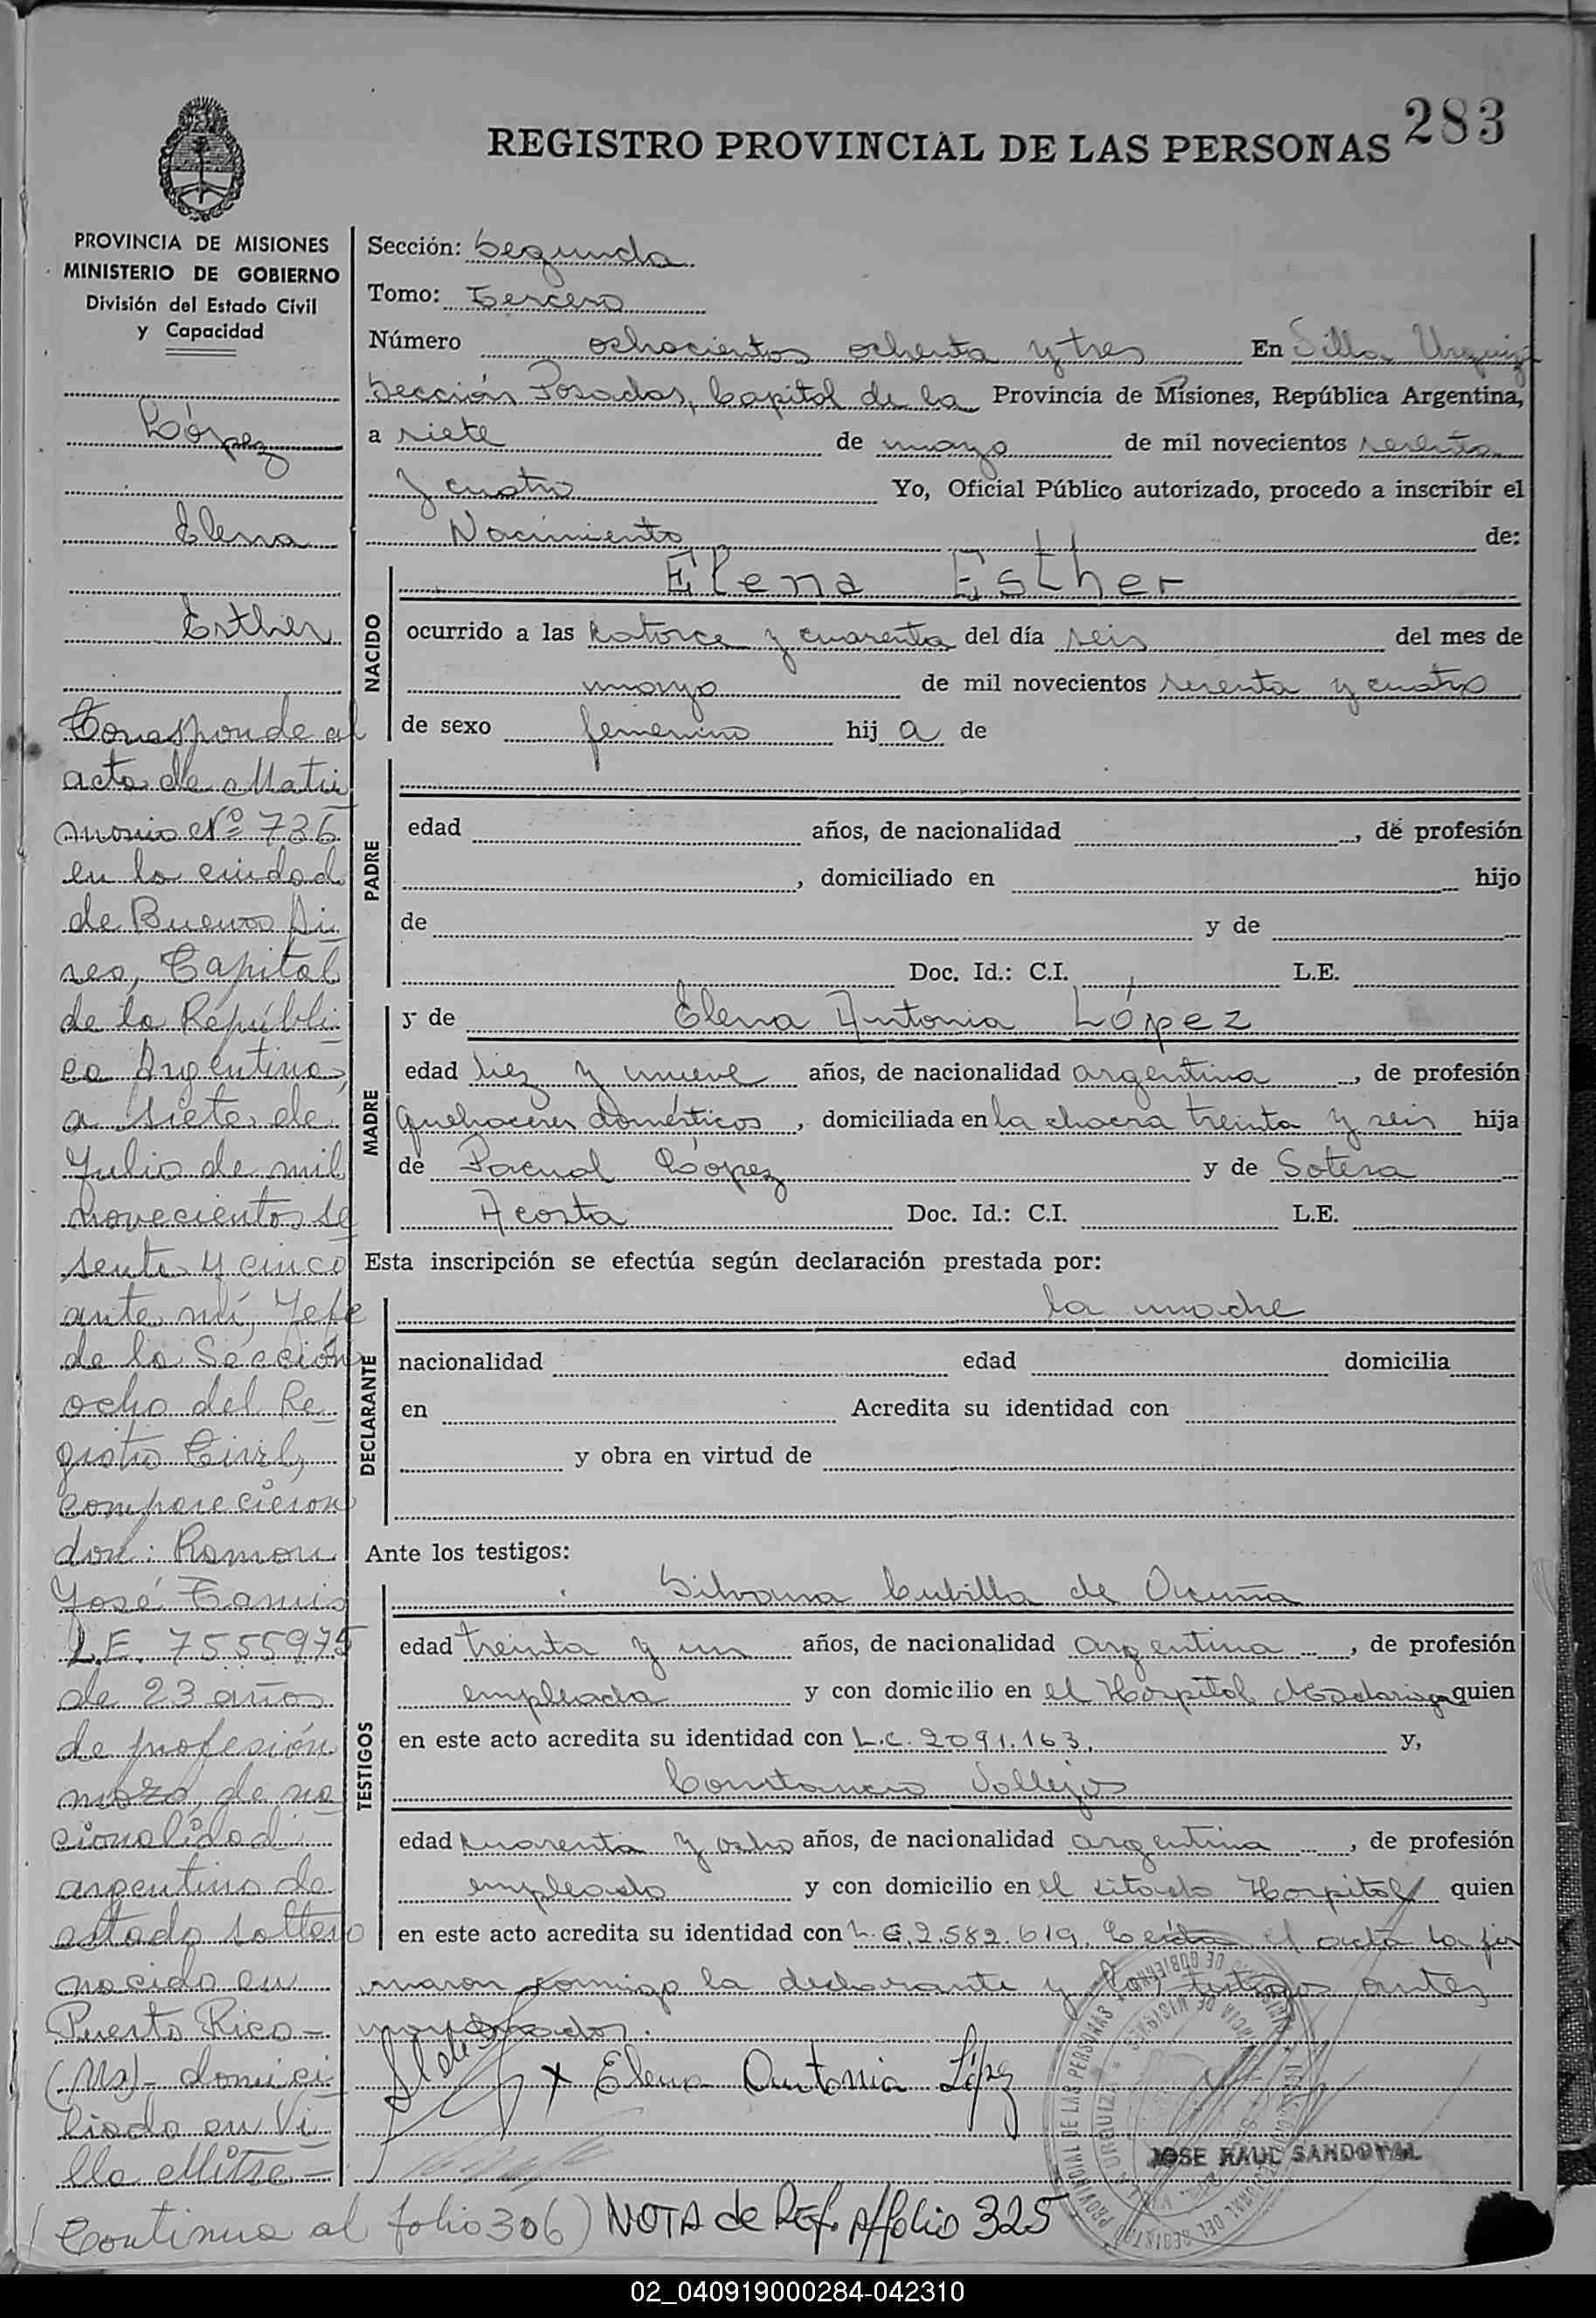 283
REGISTRO PROVINCIAL DE LAS PERSONAS
PROVINCIA DE MISIONES
MINISTERIO DE GOBIERNO
División del Estado Civil
y Capacidad
López
Elena
Esther
Corresponde al
acta de Matri
monio Nº 736
en la ciudad
de Buenos Ai
res, Capital
de la Repúbli
ca Argentina,
a siete de
Julio de mil
novecientos se
senta y cinco
ante mí, Jefe
de la Sección
ocho del Re
gistro Civil,
comparecieron
don: Ramon
José Tamis
L.E. 7555975
de 23 años
de profesión
mozo, de na
cionalidad
argentino de
estado soltero
nacido en
Puerto Rico -
(Ms) - domici
liado en Vi
lla Mitre -
Sección: Segunda
Tomo: Tercero
Número ochocientos ochenta y tres En Villa Urquiza
Sección Posadas, Capital de la Provincia de Misiones, República Argentina,
a siete de mayo de mil novecientos sesenta
y cuatro Yo, Oficial Público autorizado, procedo a inscribir el
Nacimiento de:
NACIDO
Elena Esther
ocurrido a las katorce y cuarenta del día seis del mes de
mayo de mil novecientos sesenta y cuatro
de sexo femenino hij a de
PADRE
edad años, de nacionalidad , de profesión
, domiciliado en hijo
de y de
Doc. Id.: C.I. L.E.
MADRE
y de Elena Antonia López
edad diez y nueve años, de nacionalidad argentina , de profesión
quehaceres domésticos , domiciliada en la chacra treinta y seis hija
de Pascual López y de Sotera
Acosta Doc. Id.: C.I. L.E.
Esta inscripción se efectúa según declaración prestada por:
DECLARANTE
la madre
nacionalidad edad domicilia
en Acredita su identidad con
y obra en virtud de
Ante los testigos:
TESTIGOS
Silvana Cubilla de Acuña
edad treinta y un años, de nacionalidad argentina , de profesión
empleada y con domicilio en el Hospital Madariaga quien
en este acto acredita su identidad con L.C. 2091.163. y,
Constancio Vallejos
edad kuarenta y ocho años, de nacionalidad argentina , de profesión
empleado y con domicilio en el citado Hospital quien
en este acto acredita su identidad con 2.582.619. Leída el acta la fir
maron conmigo la declarante y los testigos antes
X Elena Antonia López
JOSE RAUL SANDOVAL
(Continua al folio 306) NOTA de REf. Af folio 325
02_040919000284-042310